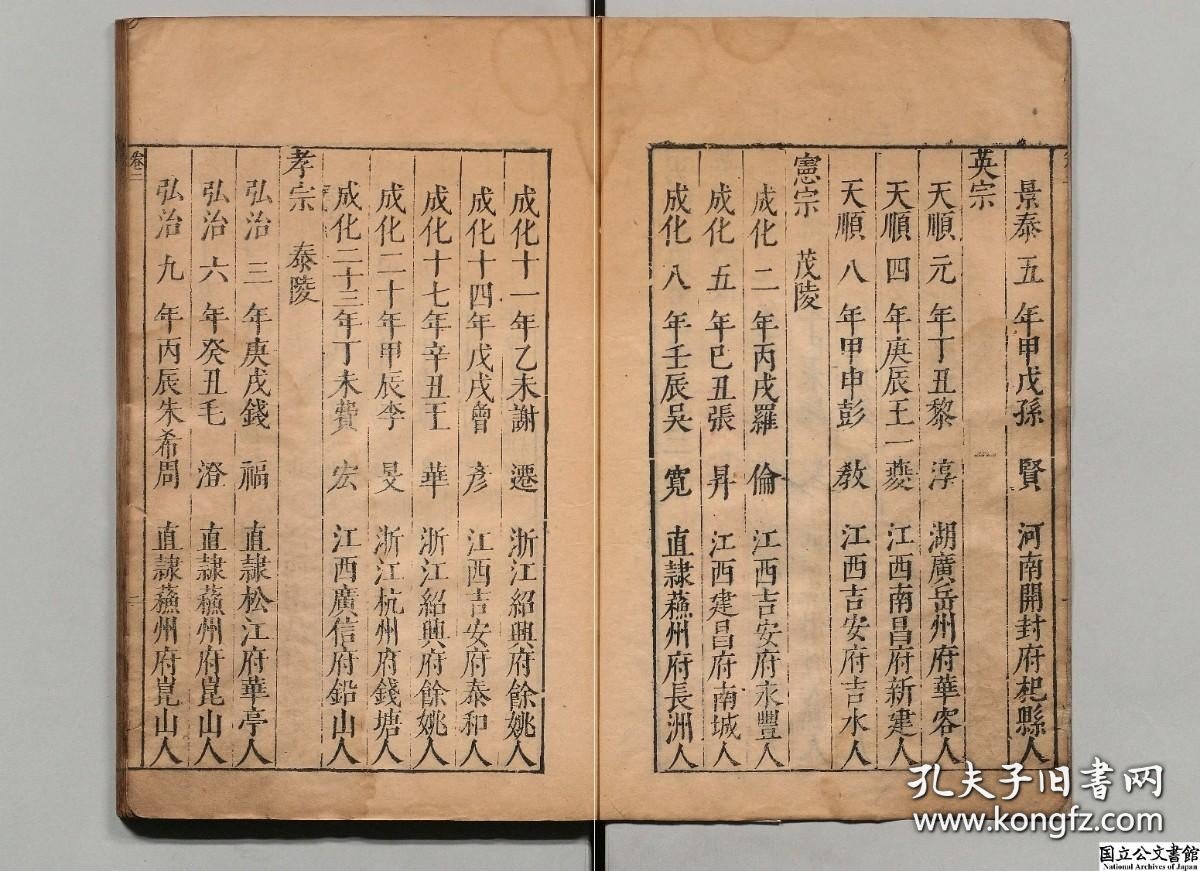 景泰五年甲戌孫賢河南開封府杞縣人
英宗
天順元年丁丑黎淳湖廣岳州府華容人
天順四年庚辰王一夔江西南昌府新建人
天順八年甲申彭教江西吉安府吉水人
憲宗 茂陵
成化二年丙戌羅倫江西吉安府永豐人
成化五年己丑張昇江西建昌府南城人
成化八年壬辰吳寬直隷蘓州府長洲人
成化十一年乙未謝遷浙江紹興府餘姚人
成化十四年戊戌曾彥江西吉安府泰和人
成化十七年辛丑王華浙江紹興府餘姚人
成化二十年甲辰李旻浙江杭州府錢塘人
成化二十三年丁未費宏江西廣信府鉛山人
孝宗 泰陵
弘治三年庚戌錢福直隷松江府華亭人
弘治六年癸丑毛澄直隷蘓州府崑山人
弘治九年丙辰朱希周直隷蘓州府崑山人
卷二
孔夫子旧书网
www.kongfz.com
国立公文書館
National Archives of Japan